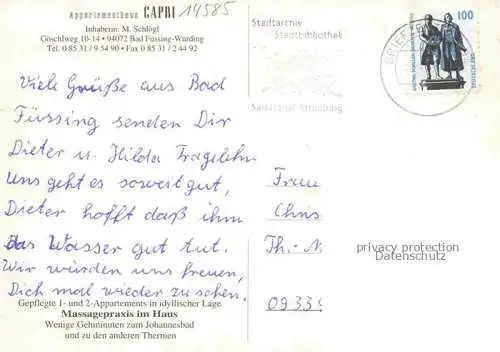 Appartementhaus CAPRI 14585
Inhaberin: M. Schlögl
Göschlweg 10-14 • 94072 Bad Füssing-Würding
Tel. 0 85 31 / 9 54 90 • Fax 0 85 31 / 2 44 92
Viele Grüße aus Bad
Füssing senden Dir
Dieter u. Hilda
Uns geht es soweit gut,
Dieter hofft daß ihm
das Wasser gut tut.
Wir würden uns freuen,
Dich mal wieder zu sehen.
Gepflegte 1- und 2-Appartements in idyllischer Lage
Massagepraxis im Haus
Wenige Gehminuten zum Johannesbad
und zu den anderen Thermen
Stadtarchiv
Stadtbibliothek
Straubing
BRIEF
100
Frau
Chris
Th.-
0933
privacy protection
Datenschutz